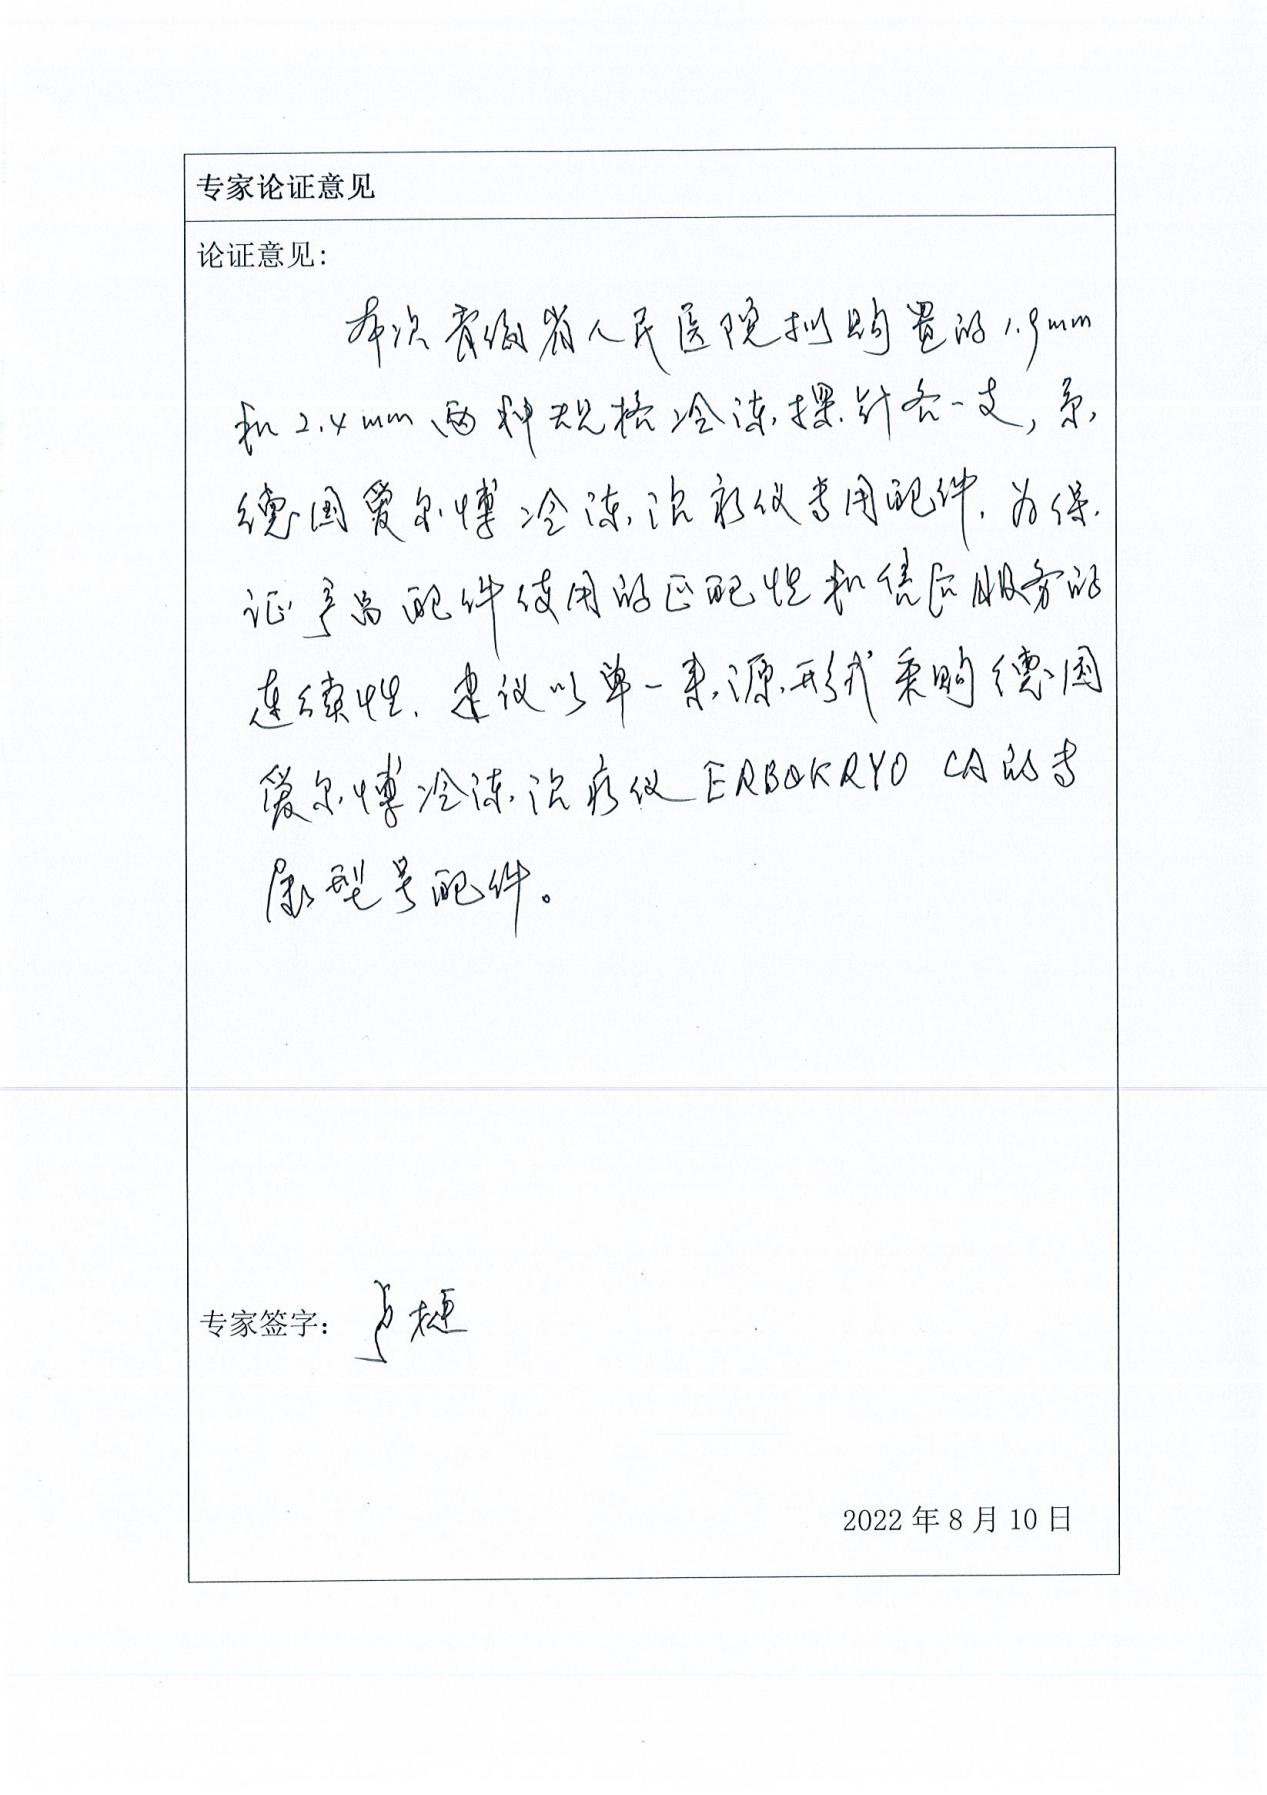 专家论证意见
论证意见:
本次青海省人民医院拟购置的1.9mm
和2.4mm两种规格冷冻探针各一支,系
德国爱尔博冷冻治疗仪专用配件.为保
证产品配件使用的匹配性和售后服务的
连续性.建议以单一来源形式采购德国
爱尔博冷冻治疗仪ERBOKRYO CA的专
属型号配件。
专家签字:
2022年8月10日